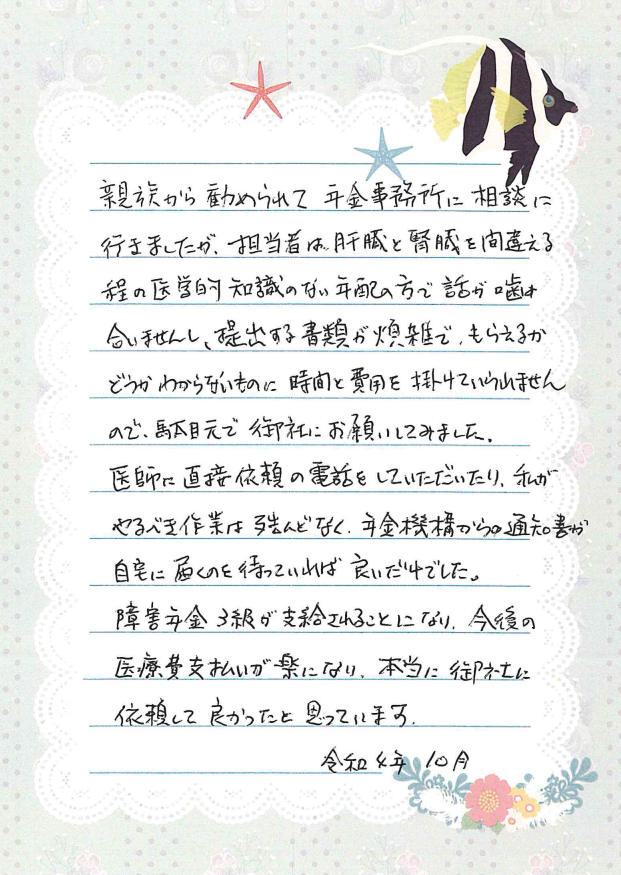 親族から勧められて 年金事務所に相談に
行きましたが、担当者は肝臓と腎臓を間違える
程の医学的知識のない年配の方で話が噛み
合いませんし、提出する書類が煩雑で、もらえるか
どうかわからないものに 時間と費用を掛けていられません
ので、駄目元で 御社にお願いしてみました。
医師に直接依頼の電話をしていただいたり、私が
やるべき作業は殆んどなく、年金機構からの通知書が
自宅に届くのを待っていれば 良いだけでした。
障害年金3級が支給されることになり、今後の
医療費支払いが楽になり、本当に御社に
依頼して良かったと思っています。
令和4年 10月